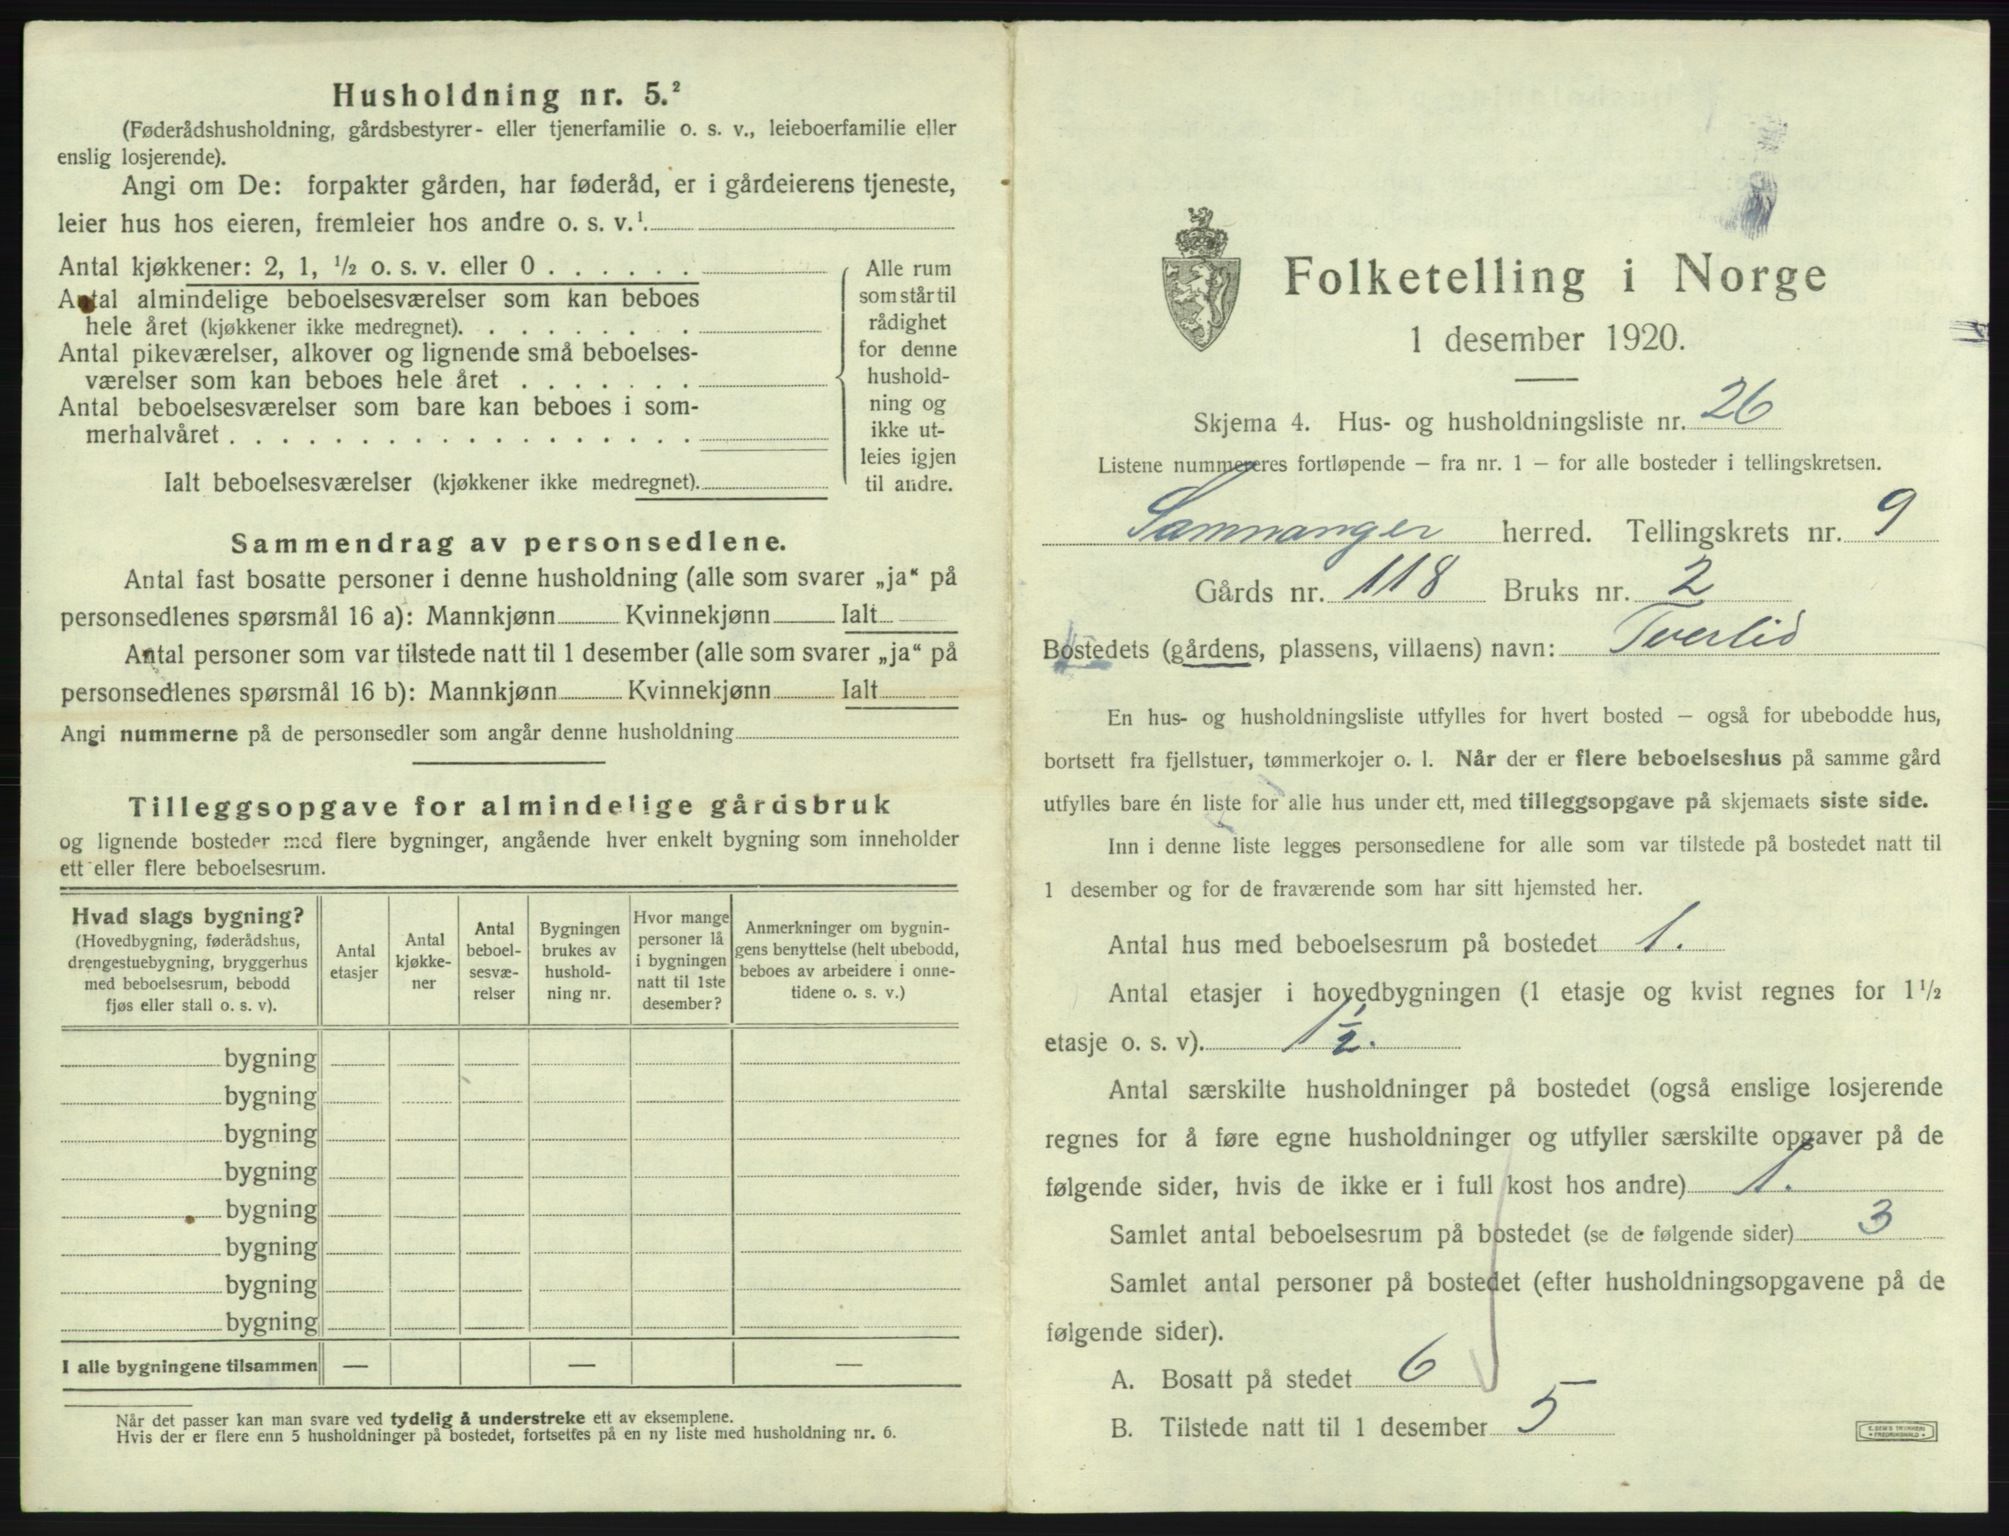 Husholdning nr. 5.²
(Føderådshusholdning, gårdsbestyrer- eller tjenerfamilie o. s. v., leieboerfamilie eller
enslig losjerende).
Angi om De: forpakter gården, har føderåd, er i gårdeierens tjeneste,
leier hus hos eieren, fremleier hos andre o. s. v.¹.
Antal kjøkkener: 2, 1, ½ o. s. v. eller 0 . . . . . .
Antal almindelige beboelsesværelser som kan beboes
hele året (kjøkkener ikke medregnet). . . . . . . . .
Antal pikeværelser, alkover og lignende små beboelses-
værelser som kan beboes hele året . . . . . . .
Antal beboelsesværelser som bare kan beboes i som-
merhalvåret . . . . . . . . . . . . . . . . . .
Ialt beboelsesværelser (kjøkkener ikke medregnet).
Alle rum
som står til
rådighet
for denne
hushold-
ning og
ikke ut-
leies igjen
til andre.
Sammendrag av personsedlene.
Antal fast bosatte personer i denne husholdning (alle som svarer „ja“ på
personsedlenes spørsmål 16 a): Mannkjønn Kvinnekjønn Ialt
Antal personer som var tilstede natt til 1 desember (alle som svarer „ja“ på
personsedlenes spørsmål 16 b): Mannkjønn Kvinnekjønn Ialt
Angi nummerne på de personsedler som angår denne husholdning
Tilleggsopgave for almindelige gårdsbruk
og lignende bosteder med flere bygninger, angående hver enkelt bygning som inneholder
ett eller flere beboelsesrum.
Hvad slags bygning?
(Hovedbygning, føderådshus,
drengestuebygning, bryggerhus
med beboelsesrum, bebodd
fjøs eller stall o. s. v).
Antal
etasjer
Antal
kjøkke-
ner
Antal
beboel-
sesvæ-
relser
Bygningen
brukes av
hushold-
ning nr.
Hvor mange
personer lå
i bygningen
natt til 1ste
desember?
Anmerkninger om bygnin-
gens benyttelse (helt ubebodd,
beboes av arbeidere i onne-
tidene o. s. v.)
bygning
bygning
bygning
bygning
bygning
bygning
bygning
bygning
I alle bygningene tilsammen — — —
Når det passer kan man svare ved tydelig å understreke ett av eksemplene.
Hvis der er flere enn 5 husholdninger på bostedet, fortsettes på en ny liste med husholdning nr. 6.
Folketelling i Norge
1 desember 1920.
Skjema 4. Hus- og husholdningsliste nr. 26
Listene nummereres fortløpende – fra nr. 1 – for alle bosteder i tellingskretsen.
Samnanger herred. Tellingskrets nr. 9
Gårds nr. 118 Bruks nr. 2
Bostedets (gårdens, plassens, villaens) navn: Tverlid
En hus- og husholdningsliste utfylles for hvert bosted – også for ubebodde hus,
bortsett fra fjellstuer, tømmerkojer o. l. Når der er flere beboelseshus på samme gård
utfylles bare én liste for alle hus under ett, med tilleggsopgave på skjemaets siste side.
Inn i denne liste legges personsedlene for alle som var tilstede på bostedet natt til
1 desember og for de fraværende som har sitt hjemsted her.
Antal hus med beboelsesrum på bostedet 1.
Antal etasjer i hovedbygningen (1 etasje og kvist regnes for 1½
etasje o. s. v). 1½.
Antal særskilte husholdninger på bostedet (også enslige losjerende
regnes for å føre egne husholdninger og utfyller særskilte opgaver på de
følgende sider, hvis de ikke er i full kost hos andre) 1.
Samlet antal beboelsesrum på bostedet (se de følgende sider) 3
Samlet antal personer på bostedet (efter husholdningsopgavene på de
følgende sider).
A. Bosatt på stedet 6
B. Tilstede natt til 1 desember 5